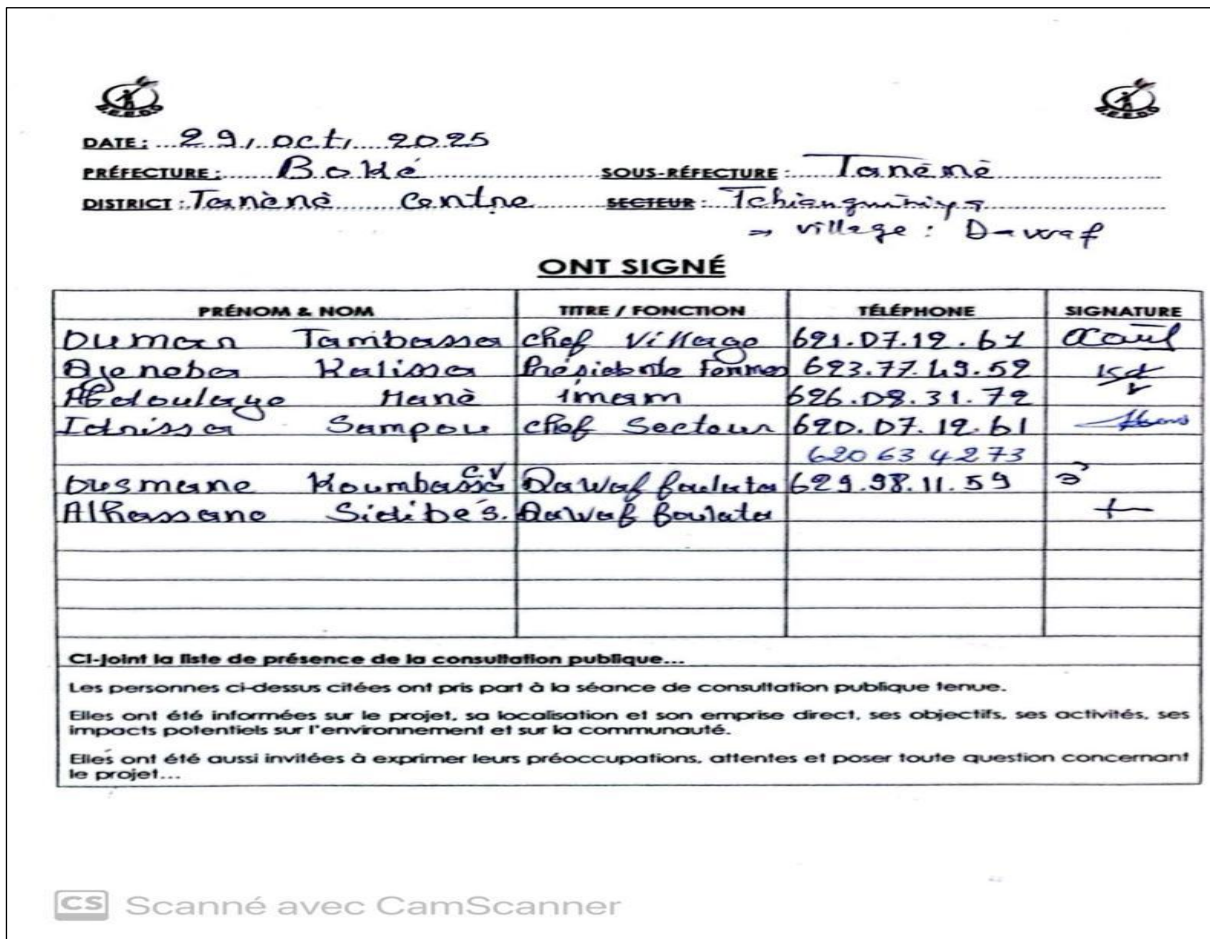 DATE : 29, oct, 2025
PRÉFECTURE : Boké SOUS-RÉFECTURE : Tanènè
DISTRICT : Tanènè Centre SECTEUR : Tchianguiniya
⇒ village : Dawaf
ONT SIGNÉ
PRÉNOM & NOM TITRE / FONCTION TÉLÉPHONE SIGNATURE
Oumar Tambassa chef Village
Kalissa Présidente femmes 623.77.49.59
Abdoulaye Manè imam 626.08.31.72
Idrissa Sampou chef Secteur 620.07.12.61
620 63 42 73
Ousmane Koumbassa C.V Dawaf foulata 629.98.11.59
Alhassane Sidibé S. Dawaf foulata
Ci-joint la liste de présence de la consultation publique...
Les personnes ci-dessus citées ont pris part à la séance de consultation publique tenue.
Elles ont été informées sur le projet, sa localisation et son emprise direct, ses objectifs, ses activités, ses
impacts potentiels sur l'environnement et sur la communauté.
Elles ont été aussi invitées à exprimer leurs préoccupations, attentes et poser toute question concernant
le projet...
CS Scanné avec CamScanner